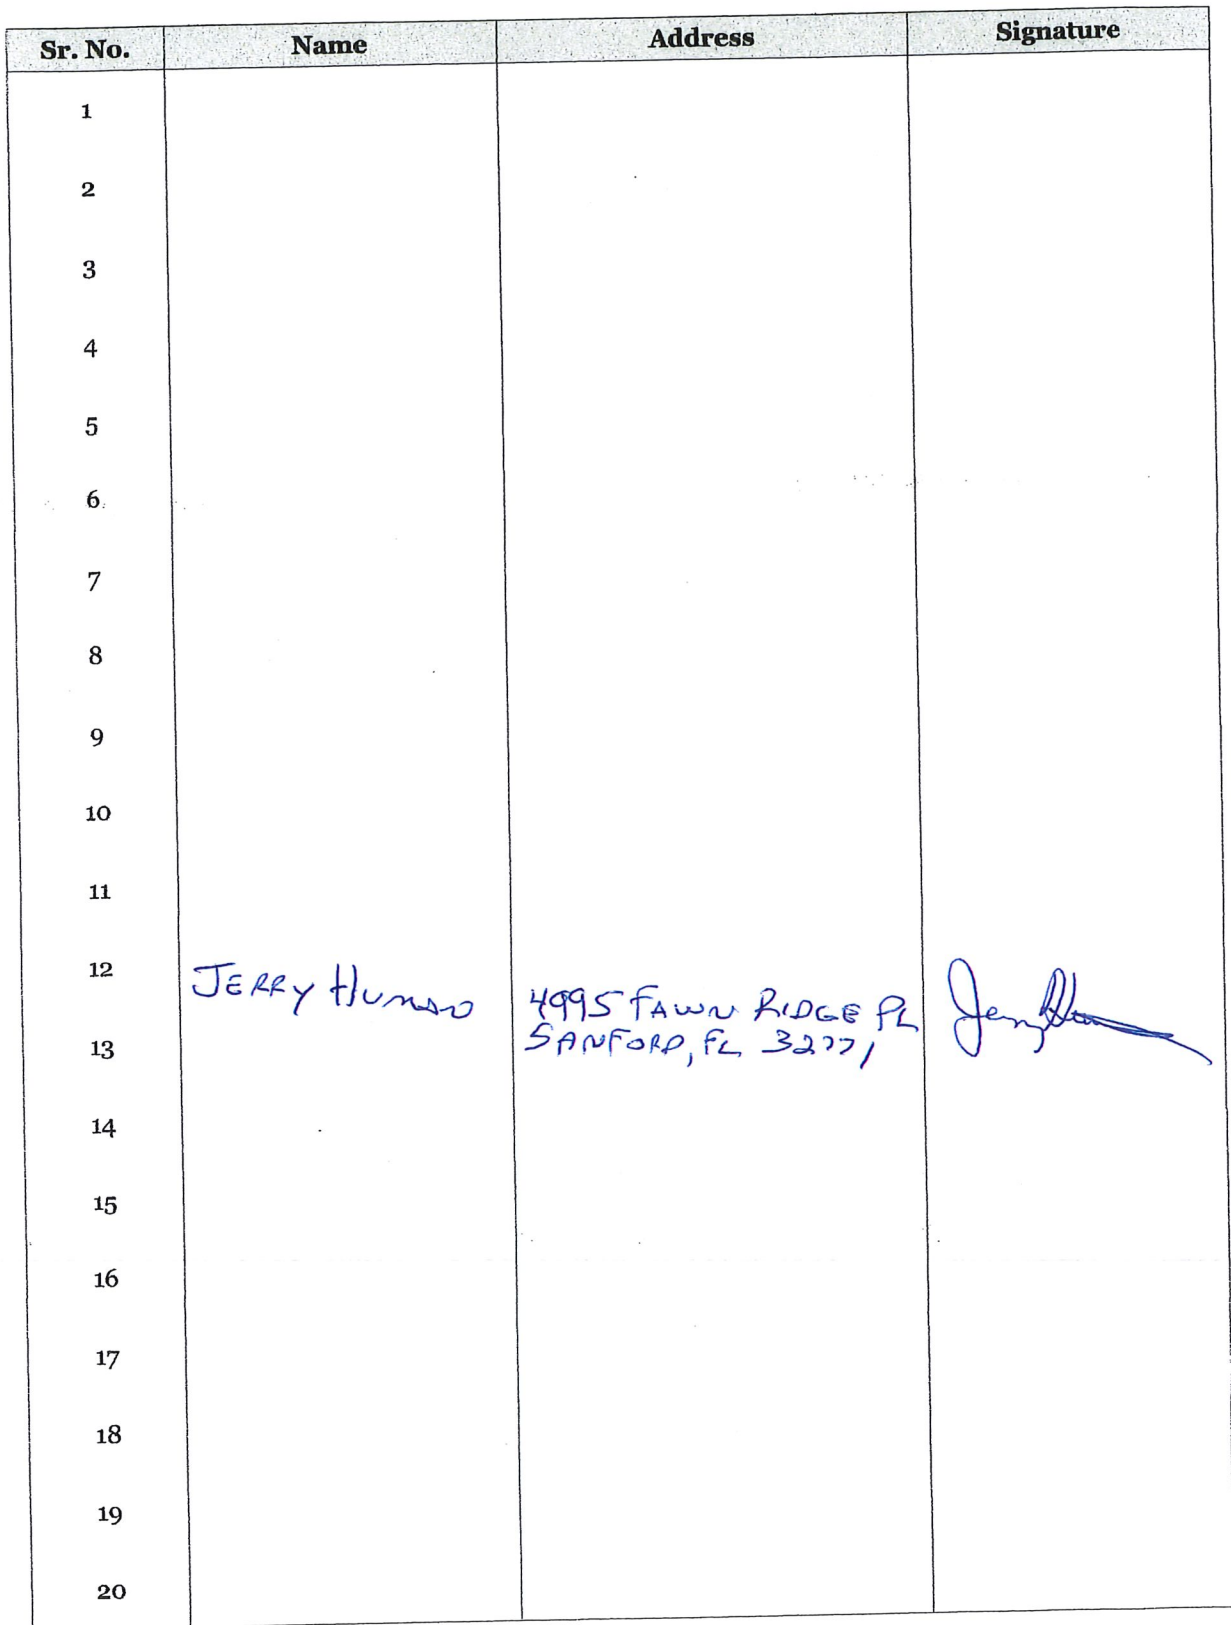 Sr. No. Name Address Signature
1
2
3
4
5
6
7
8
9
10
11
12 JERRY 4995 FAWN RIDGE PL
13 SANFORD, FL 32771
14
15
16
17
18
19
20